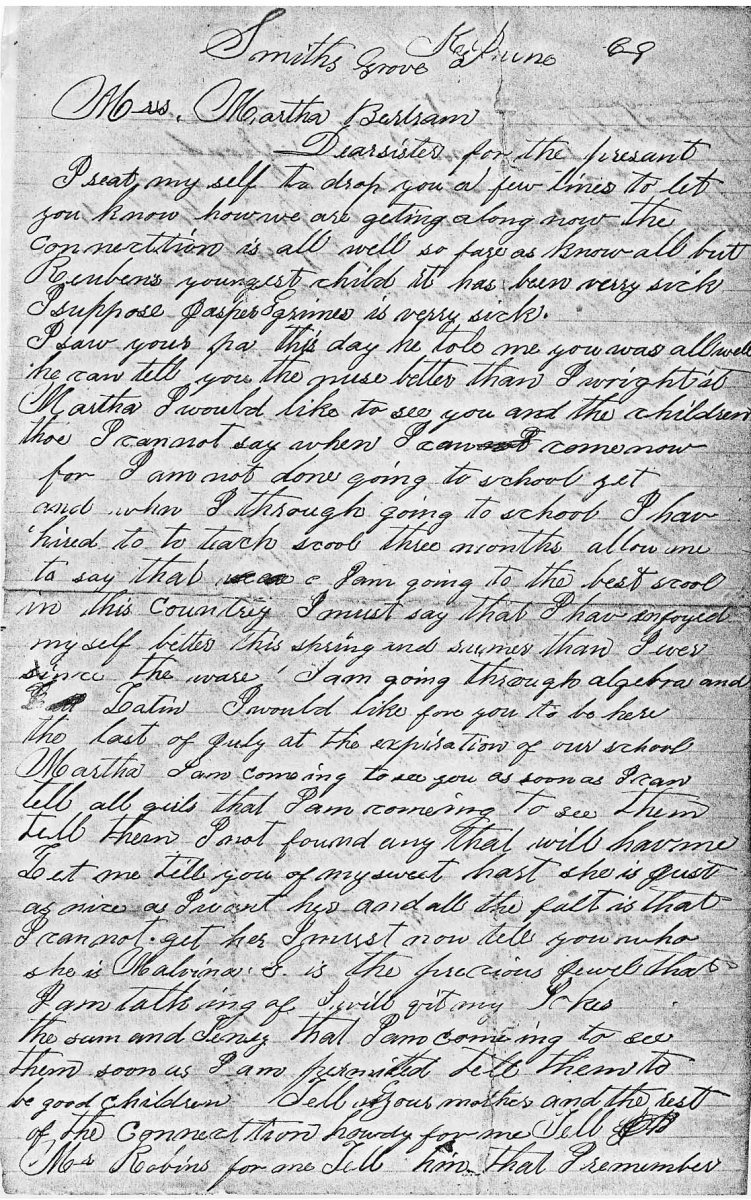 Smiths Grove Ky June 69
Mrs. Martha Bertram
Dear sister for the presant
I seat my self to drop you a few lines to let
you know how we are geting along now the
Connecttion is all well so fare as know all but
Reubens youngest child it has been verry sick
I suppose Jasper Grimes is verry sick.
I saw your pa this day he tole me you was all well
he can tell you the nuse better than I wright it
Martha I would like to see you and the children
thoe I cannot say when I can come now
for I am not done going to school yet
and when I through going to school I hav
hired to to teach scool three months allow me
to say that I am going to the best scool
in this Countrey I must say that I hav enjoyed
my self better this spring and sumer than I ever
since the ware I am going through algebra and
Latin I would like fore you to be here
the last of July at the expiration of our school
Martha I am comeing to see you as soon as I can
tell all girls that I am comeing to see them
tell them I not found any that will hav me
Let me tell you of my sweet hart she is just
as nice as I want her and all the falt is that
I can not get her I must now tell you who
she is Malvina S is the precious Jewel that
I am talking of I will qit my Jokes
the sum and that I am comeing to see
them soon as I am permitted tell them to
be good children Tell your mother and the rest
of the Connecttion howdy for me Tell
Mr Robins for me Tell him that I remember